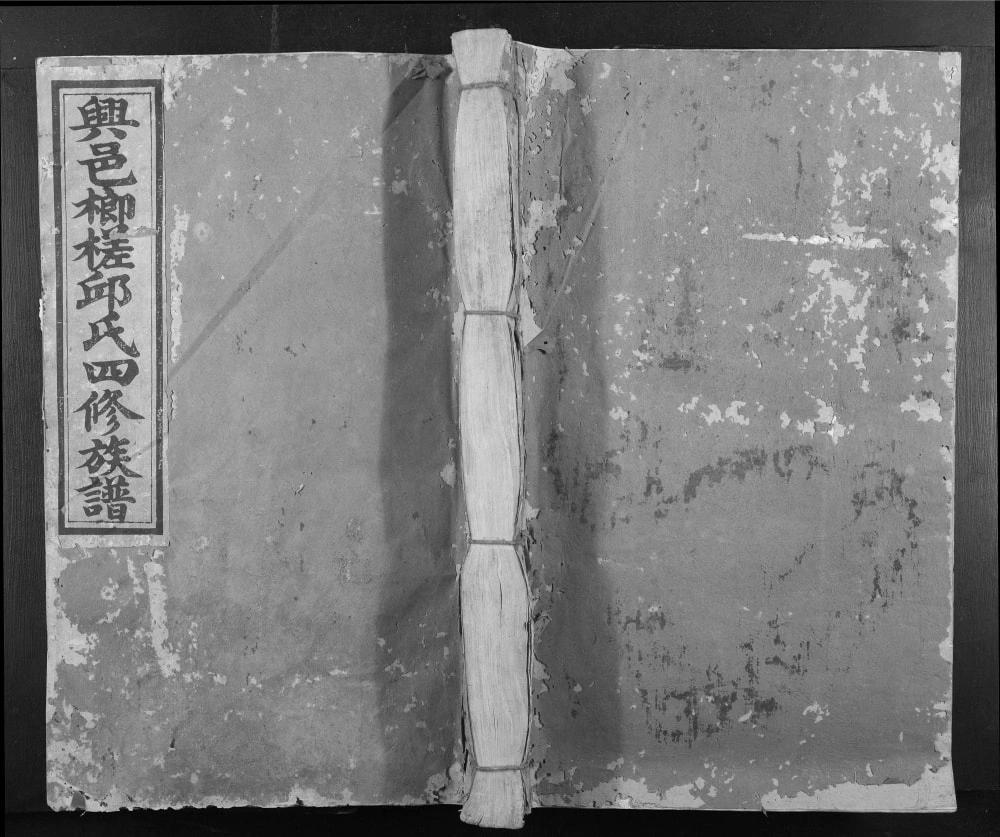 興邑櫛槎邱氏四修族譜